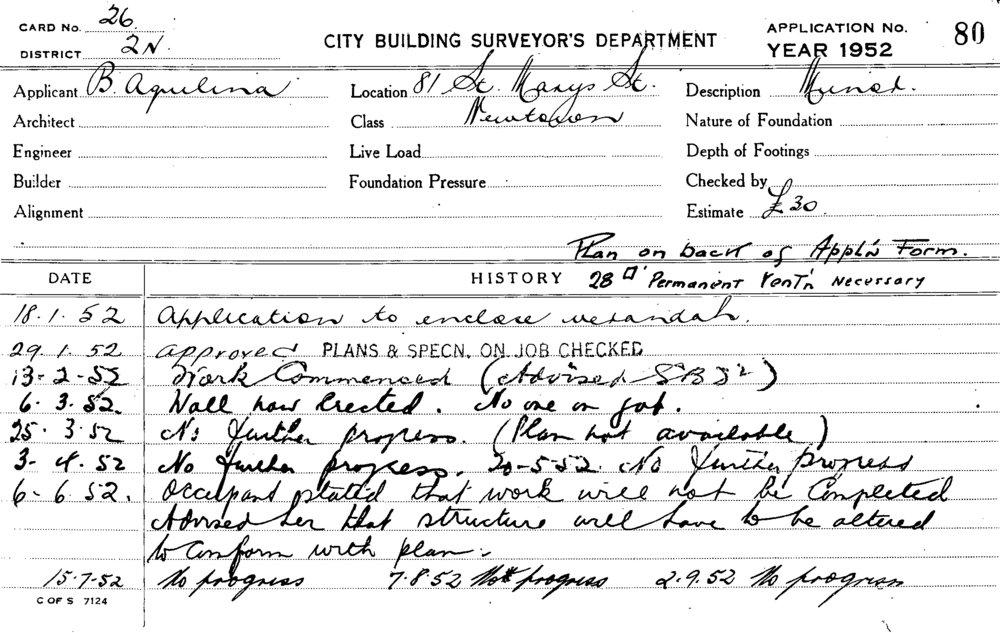 CARD No. 26
DISTRICT 2N.
CITY BUILDING SURVEYOR'S DEPARTMENT
APPLICATION No. 80
YEAR 1952
Applicant B. Aquilina Location 81 St. Marys St. Description
Architect Class Newtown Nature of Foundation
Engineer Live Load Depth of Footings
Builder Foundation Pressure Checked by
Alignment Estimate £30
Plan on back of Appl'n Form.
DATE HISTORY 28 □' Permanent Vent'n Necessary
18.1.52 Application to enclose verandah.
29.1.52 approved PLANS & SPECN. ON JOB CHECKED
13-2-52 Work Commenced (Advised
6.3.52. Wall now Erected. No one on job.
25.3.52 No further progress. (Plan not available)
3-4.52 No further progress. 20-5-52. No further progress
6-6.52. Occupant stated that work will not be Completed
Advised her that structure will have to be altered
to Conform with plan.
15-7-52 No progress 7.8.52 No progress 2.9.52 No progress
C OF S 7124